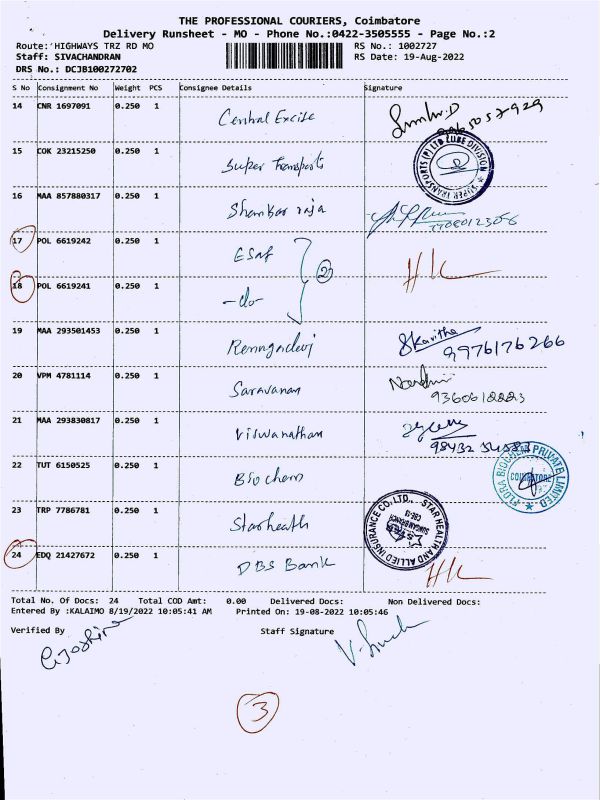 THE PROFESSIONAL COURIERS, Coimbatore
Delivery Runsheet - MO - Phone No.:0422-3505555 - Page No.:2
Route:'HIGHWAYS TRZ RD MO RS No.: 1002727
Staff: SIVACHANDRAN RS Date: 19-Aug-2022
DRS No.: DCJB100272702
S No Consignment No Weight PCS Consignee Details Signature
14 CNR 1697091 0.250 1 Central Excise
15 COK 23215250 0.250 1 Super Transports
SUPER TRANSPORTS (P) LTD
16 MAA 857880317 0.250 1 Shankar raja
17 POL 6619242 0.250 1 ESAF
2
18 POL 6619241 0.250 1 -do-
19 MAA 293501453 0.250 1 Renugadevi SKavitha
9976176266
20 VPM 4781114 0.250 1 Saravanan Nandhini
9360612223
21 MAA 293830817 0.250 1 Viswanathan
22 TUT 6150525 0.250 1 Biochem
FLORA BIOCHEM PRIVATE LIMITED
COIMBATORE
23 TRP 7786781 0.250 1 Starhealth
STAR HEALTH AND ALLIED INSURANCE CO LTD.,
24 EDQ 21427672 0.250 1 DBS Bank
Total No. Of Docs: 24 Total COD Amt: 0.00 Delivered Docs: Non Delivered Docs:
Entered By :KALAIMO 8/19/2022 10:05:41 AM Printed On: 19-08-2022 10:05:46
Verified By Staff Signature
3